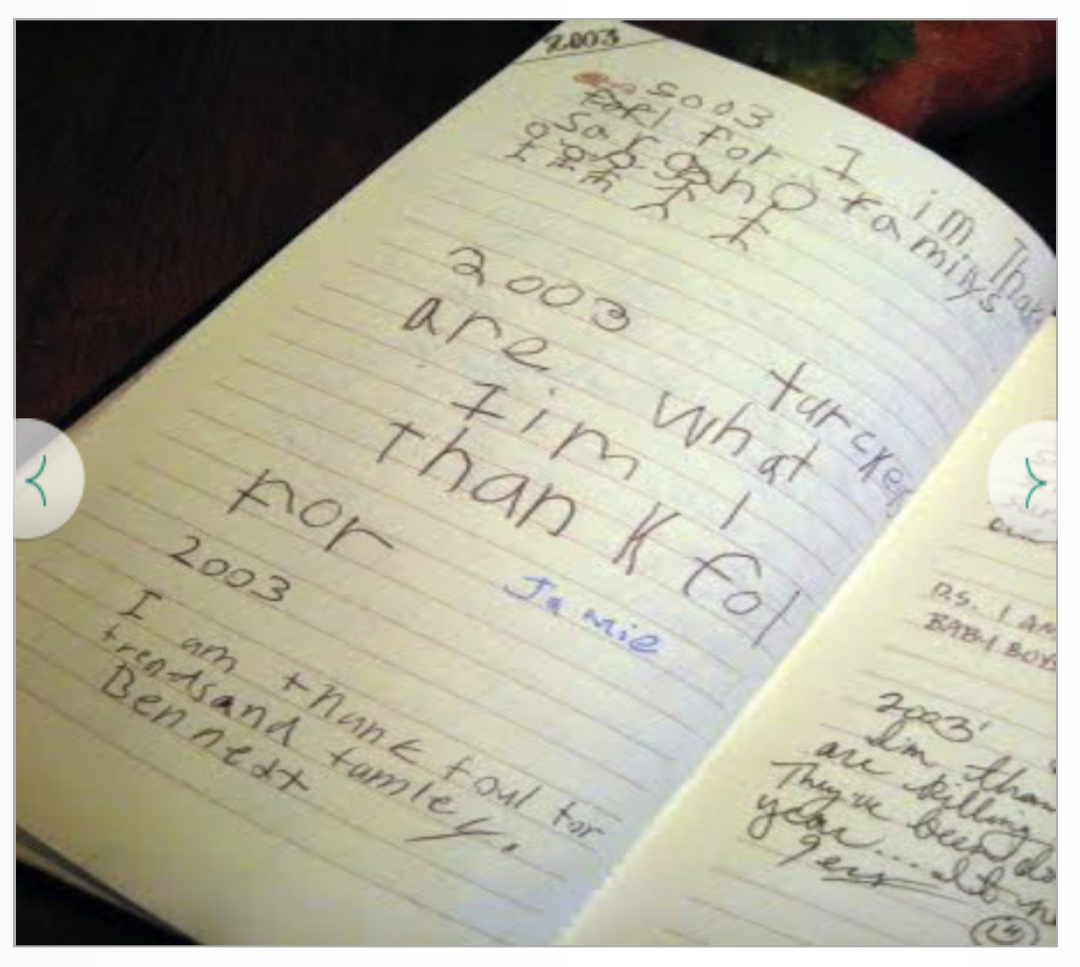 2003
2003 I im Than
for familys
Sarah
2003 turckey
are what
I im
Thankfol
For
Jamie
2003
I am thunk foul for
frendsand famley.
Bennett
P.S. I AM
BABY BOYS
2003!
I'm than
are killing
They've been do
year....